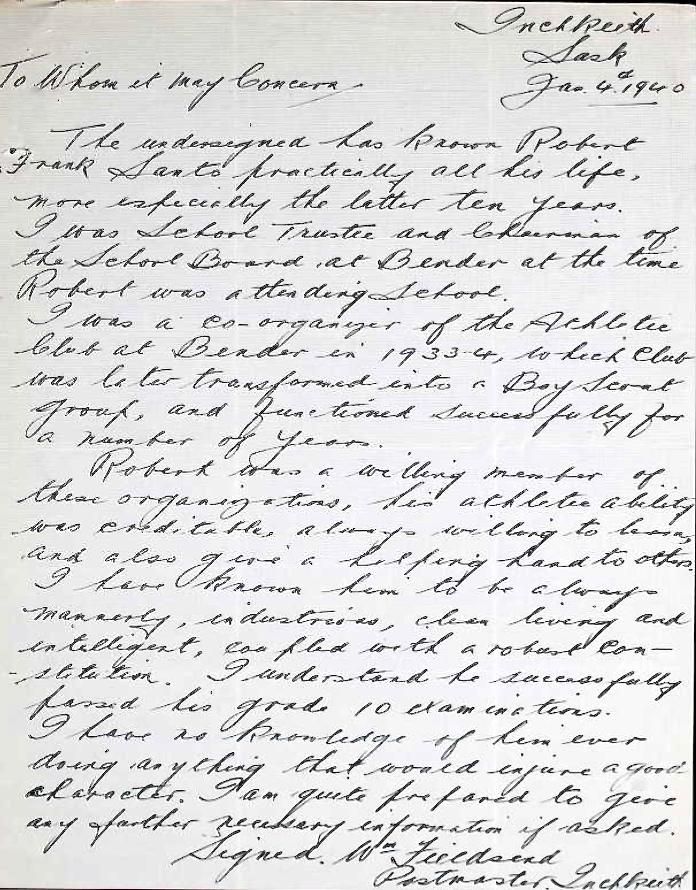 Inchkeith.
Sask
Jan. 4th 1940
To Whom it may Concern.
The undersigned has known Robert
Frank Santo practically all his life,
more especially the latter ten years.
I was School Trustee and Chairman of
the School Board, at Bender at the time
Robert was attending School.
I was a co-organizer of the Athletic
Club at Bender in 1933-4, which Club
was later transformed into a Boy Scout
group, and functioned successfully for
a number of years.
Robert was a willing member of
these organizations, his athletic ability
was creditable, always willing to learn,
and also give a helping hand to others.
I have known him to be always
mannerly, industrious, clean living and
intelligent, coupled with a robust con-
-stitution. I understand he successfully
passed his grade 10 examinations.
I have no knowledge of him ever
doing anything that would injure a good
character. I am quite prepared to give
any further necessary information if asked.
Signed. Wm Fieldsend
Postmaster. Inchkeith